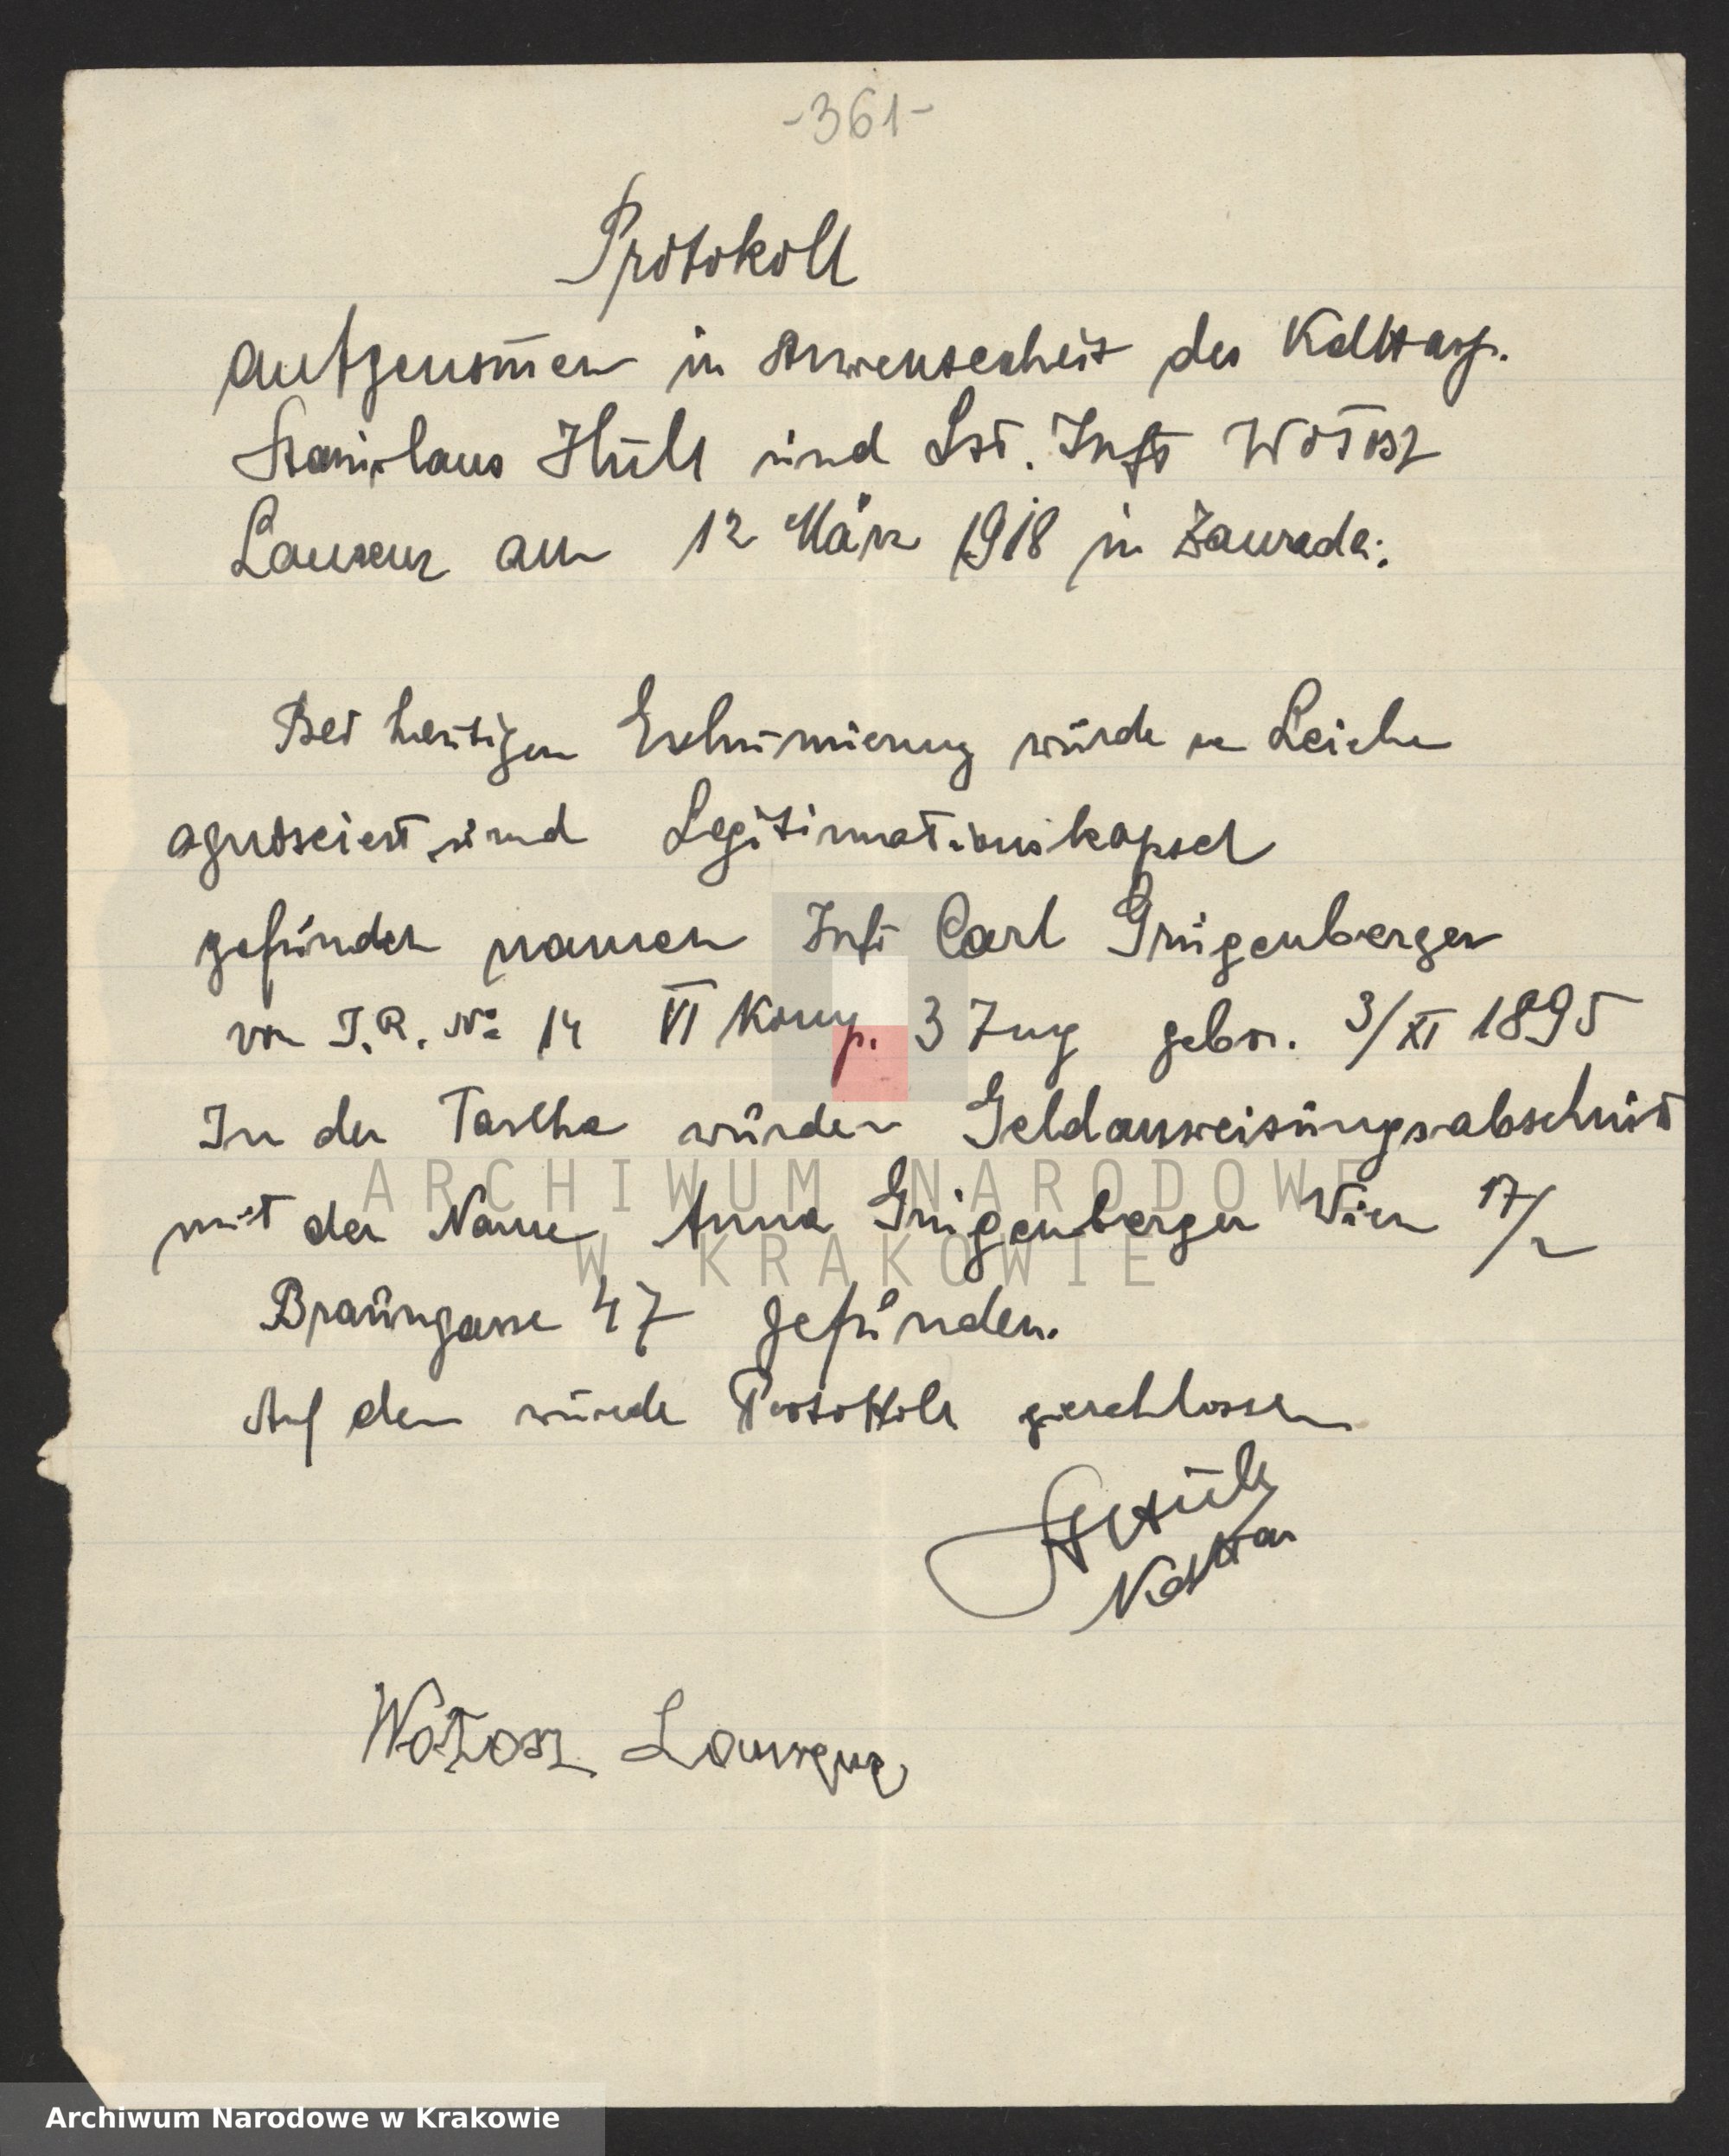 -361-
Protokoll
aufgenom̄en in Anwesenheit des
Stanislaus Hübl und Lst. Inft Wołosz
Laurenz am 12 März 1918 in Zawada.
Bei heutigen Exhumierung wurde Leiche
agnosciert und Legitimationskapsel
gefunden namen Inft Carl Grügenberger
von I.R. № 14 VI Komp. 3 Zug gebor. 3/XI 1895
In der Tasche wurden Geldanweisungsabschnit
mit der Name Anna Grügenberger Wien 17/2
Braungasse 47 gefunden.
Auf dem wurde Protokoll geschlossen
Wołosz Laurenz
ARCHIWUM NARODOWE
W KRAKOWIE
Archiwum Narodowe w Krakowie